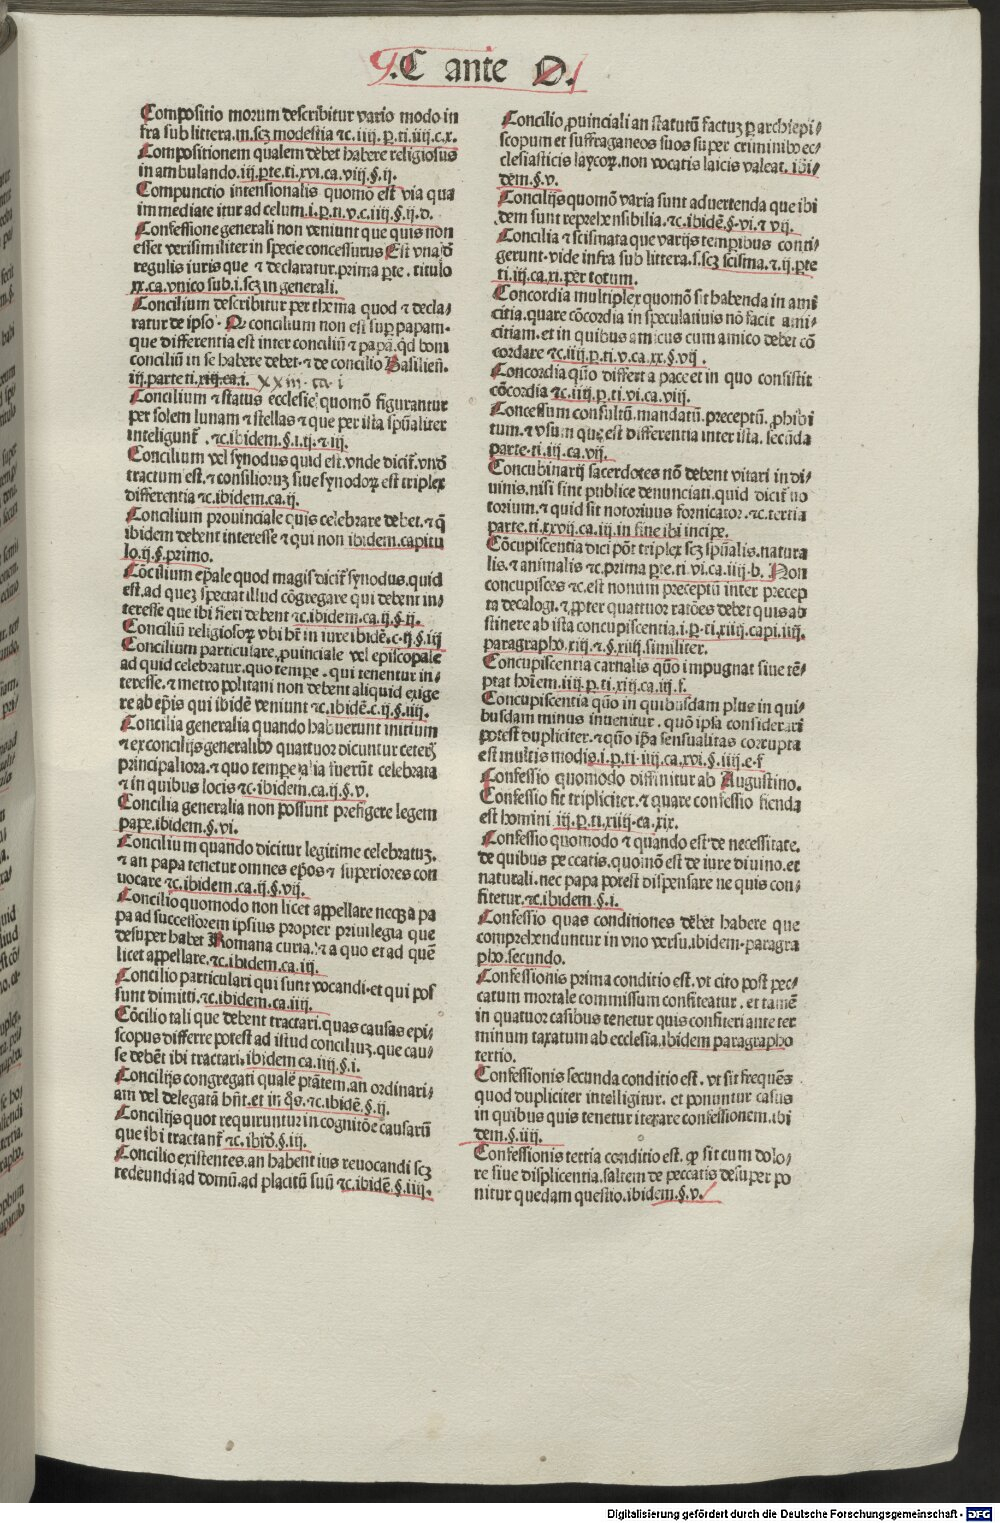 .C ante O.
Compositio morum describitur vario modo in
fra sub littera.m.scʒ modestia ⁊c.iiij.p.ti.iiij.c.x.
Compositionem qualem dēbet habere religiosus
in ambulando.iij.p̄te.ti.xvi.ca.viij.§.ij.
Compunctio intensionalis quomō est via qua
immediate itur ad celum.i.p.ti.v.c.iiij.§.ij.d.
Confessione generali non veniunt que quis non
esset verisimiliter in specie concessurus Est vna d̄
regulis iuris que ⁊ declaratur.prima p̄te.titulo
xx.ca.vnico sub.i.scʒ in generali.
Concilium describitur per thema quod ⁊ decla⸗
ratur de ipso. Q concilium non est suꝑ papam.
que differentia est inter conciliū ⁊ papā.q̇d boni
conciliū in se habere debet.⁊ de concilio Basilieñ.
iij.parte ti.xiij.ca.i. xxiii. ca. i
Concilium ⁊ status ecclesie quomō figurantur
per solem lunam ⁊ stellas ⁊ que per ista spūaliter
inteligunt̄ .⁊c.ibidem.§.i.ij.⁊ iij.
Concilium vel synodus quid est.vnde dicit̄.vnd̄
tractum est.⁊ consiliorum siue synodoꝝ est triplex
differentia ⁊c.ibidem.ca.ij.
Concilium prouinciale quis celebrare debet.⁊ q̄
ibidem debent interesse ⁊ qui non ibidem.capitu
lo.ij.§.primo.
Cōcilium ep̄ale quod magis dicit̄ synodus.quid
est.ad queʒ spectat illud cōgregare qui debent in⸗
teresse que ibi fieri debent ⁊c.ibidem.ca.ij.§.ij.
Conciliū religiosoꝝ vbi h̄t in iure ibidē.c.ij.§.iij
Concilium particulare,ꝓuinciale vel episcopale
ad quid celebratur.quo tempe.qui tenentur in⸗
teresse.⁊ metropolitani non debent aliquid exige
re ab ep̄is qui ibidē veniunt ⁊c.ibidē.c.ij.§.iiij.
Concilia generalia quando habuerunt initium
⁊ ex concilijs generalibꝰ quattuor dicuntur ceteris
principaliora.⁊ quo tempe alia fuerūt celebrata
⁊ in quibus locis ⁊c.ibidem.ca.ij.§.v.
Concilia generalia non possunt prefigere legem
pape.ibidem.§.vi.
Concilium quando dicitur legitime celebratuʒ.
⁊ an papa tenetur omnes ep̄os ⁊ superiores con
uocare ⁊c.ibidem.ca.ij.§.vij.
Concilio quomodo non licet appellare necqʒ a pa
pa ad successorem ipsius propter priuilegia que
desuper habet Romana curia.⁊ a quo et ad quē
licet appellare.⁊c.ibidem.ca.iij.
Concilio particulari qui sunt vocandi.et qui pos
sunt dimitti.⁊c.ibidem.ca.iiij.
Cōcilio tali que debent tractari.quas causas epi⸗
scopus differre potest ad istud conciliuʒ.que cau⸗
se debēt ibi tractari.ibidem ca.iiij.§.i.
Concilijs congregati qualē ptātem.an ordinari⸗
am vel delegatā hn̄t.et in q̇s.⁊c.ibidē.§.ij.
Concilijs quot requiruntur in cognitōe causarū
que ibi tractant̄ ⁊c.ibid̄.§.iij.
Concilio existentes.an habent ius reuocandi scʒ
redeundi ad domū.ad placitū suū ⁊c.ibidē.§.iiij.
Concilio,ꝓuinciali an statutū factuʒ ꝑ archiepi⸗
scopum et suffraganeos suos super criminibꝰ ec⸗
clesiasticis laycoꝝ.non vocatis laicis valeat.ibi⸗
dem.§.v.
Concilijs quomō varia sunt aduertenda que ibi
dem sunt reprehensibilia.⁊c.ibidē.§.vi.⁊ vij.
Concilia ⁊ scismata que varijs temꝑibus conti⸗
gerunt.vide infra sub littera.s.scʒ scisma.⁊.ij.p̄te
ti.iij.ca.xi.per totum.
Concordia multiplex quomō sit habenda in ami
citia.quare cōcordia in speculatiuis nō facit ami⸗
citiam.et in quibus amicus cum amico debet cō
cordare ⁊c.iiij.p.ti.v.ca.xx.§.vij.
Concordia qūo differt a pace et in quo consistit
cōcordia ⁊c.iiij.p.ti.vi.ca.viij.
Concessum consultū.mandatū.preceptū.ꝓhibi
tum.⁊ vsum que est differentia inter ista.secūda
parte.ti.iij.ca.vij.
Concubinarij sacerdotes nō debent vitari in di⸗
uinis.nisi sint publice denunciati.quid dicit̄ no
torium.⁊ quid sit notorius fornicator.⁊c.tertia
parte.ti.xxvij.ca.iij.in fine ibi incipe.
Cōcupiscentia dici pōt triplex scʒ spūalis.natura
lis.⁊ animalis ⁊c.prima p̄te.ti.vi.ca.iiij.b. Non
concupisces ⁊c.est nonum preceptū inter precep
ta decalogi.⁊ ꝓpter quattuor ratōes debet quis ab
stinere ab ista concupiscentia.i.p.ti.xiiij.capi.iiij.
paragrapho.xiij.⁊.§.xiiij.similiter.
Concupiscentia carnalis qūo impugnat siue tē⸗
ptat hoīem.iiij.p.ti.xiij.ca.iij.f.
Concupiscentia qūo in quibusdam plus in qui⸗
busdam minus inuenitur.quō ipsa considerari
potest dupliciter.⁊ qūo ip̄a sensualitas corrupta
est multis modis.i.p.ti.iiij.ca.xvi.§.iiij.e.f
Confessio quomodo diffinitur ab Augustino.
Confessio fit tripliciter.⁊ quare confessio fienda
est homini.iij.p.ti.xiiij.ca.xix.
Confessio quomodo ⁊ quando est de necessitate.
de quibus peccatis.quomō est de iure diuino.et
naturali.nec papa potest dispensare ne quis con⸗
fitetur.⁊c.ibidem.§.i.
Confessio quas conditiones dēbet habere que
comprehenduntur in vno versu.ibidem.paragra
pho.secundo.
Confessionis prima conditio est.vt cito post pec⸗
catum mortale commissum confiteatur.et tamē
in quatuor casibus tenetur quis confiteri ante ter
minum taxatum ab ecclesia.ibidem paragrapho
tertio.
Confessionis secunda conditio est.vt sit frequēs
quod dupliciter intelligitur.et ponuntur casus
in quibus quis tenetur iterare confessionem.ibi
dem.§.iiij.
Confessionis tertia conditio est.ꝙ sit cum dolo⸗
re siue displicentia.saltem de peccatis desuper po
nitur quedam questio.ibidem.§.v.
Digitalisierung gefördert durch die Deutsche Forschungsgemeinschaft - DFG